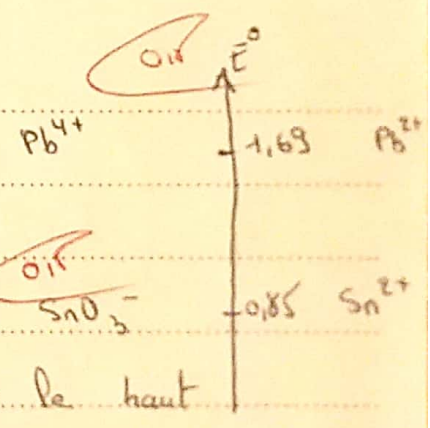 Oui
E°
Pb⁴⁺ 1,69 Pb²⁺
Oui
SnO₃⁻ 0,85 Sn²⁺
le haut